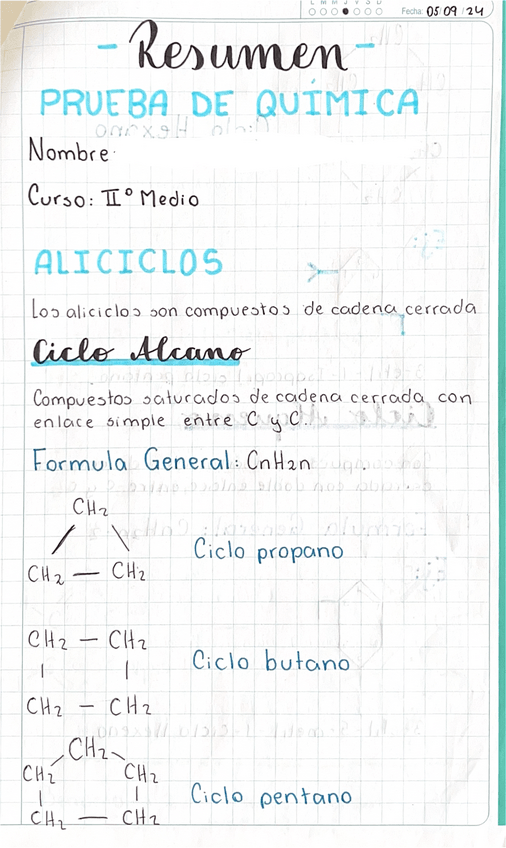 L M M J V S D
Fecha: 05 09 / 24
- Resumen -
PRUEBA DE QUÍMICA
Nombre:
Curso: II° Medio
ALICICLOS
Los aliciclos son compuestos de cadena cerrada
Ciclo Alcano
Compuestos saturados de cadena cerrada con
enlace simple entre C y C.
Formula General: CnH2n
CH2
CH2 — CH2
Ciclo propano
CH2 — CH2
| |
CH2 — CH2
Ciclo butano
CH2
CH2 CH2
| |
CH2 — CH2
Ciclo pentano